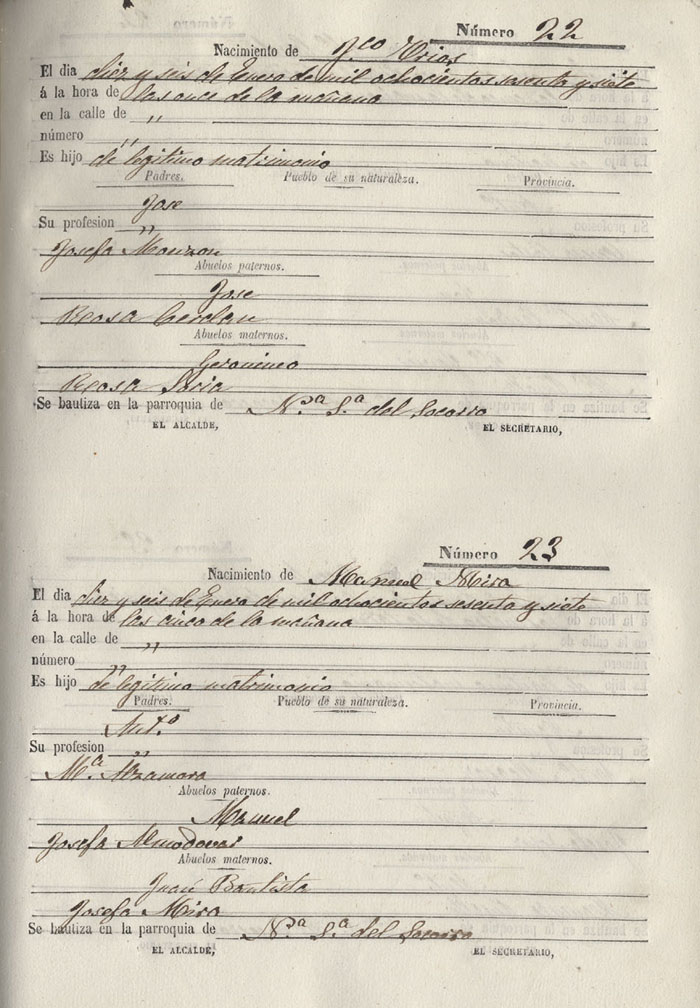 Número 22
Nacimiento de Fco Mira
El dia diez y seis de Enero de mil ochocientos sesenta y siete
á la hora de las once de la mañana
en la calle de "
número "
Es hijo de legitimo matrimonio
Padres. Pueblo de su naturaleza. Provincia.
Jose
Su profesion "
Josefa Monzon
Abuelos paternos.
Jose
Rosa Cerdan
Abuelos maternos.
Geronimo
Rosa
Se bautiza en la parroquia de N.ra S.a del Socorro
EL ALCALDE, EL SECRETARIO,
Número 23
Nacimiento de Manuel Mira
El dia diez y seis de Enero de mil ochocientos sesenta y siete
á la hora de las cinco de la mañana
en la calle de "
número "
Es hijo de legitimo matrimonio
Padres. Pueblo de su naturaleza. Provincia.
Ant.o
Su profesion "
M.a Alzamora
Abuelos paternos.
Manuel
Josefa Almodovar
Abuelos maternos.
Juan Bautista
Josefa Mira
Se bautiza en la parroquia de N.ra S.a del Socorro
EL ALCALDE, EL SECRETARIO,